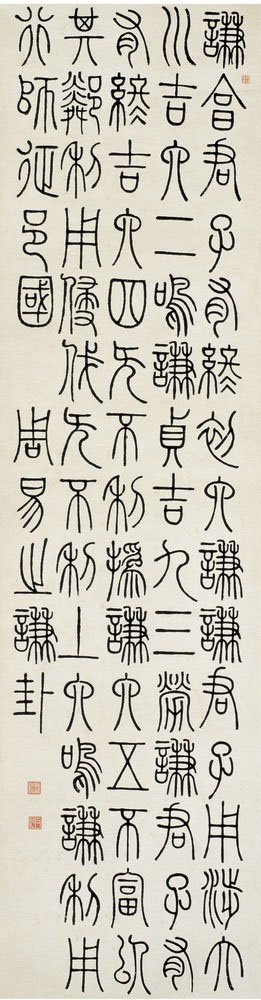 謙亯君子有終初六謙謙君子用涉大
川吉六二鳴謙貞吉九三勞謙君子有
有終吉六四无不利撝謙六五不富以
其鄰利用侵伐无不利上六鳴謙利用
行師征邑國 周易之謙卦